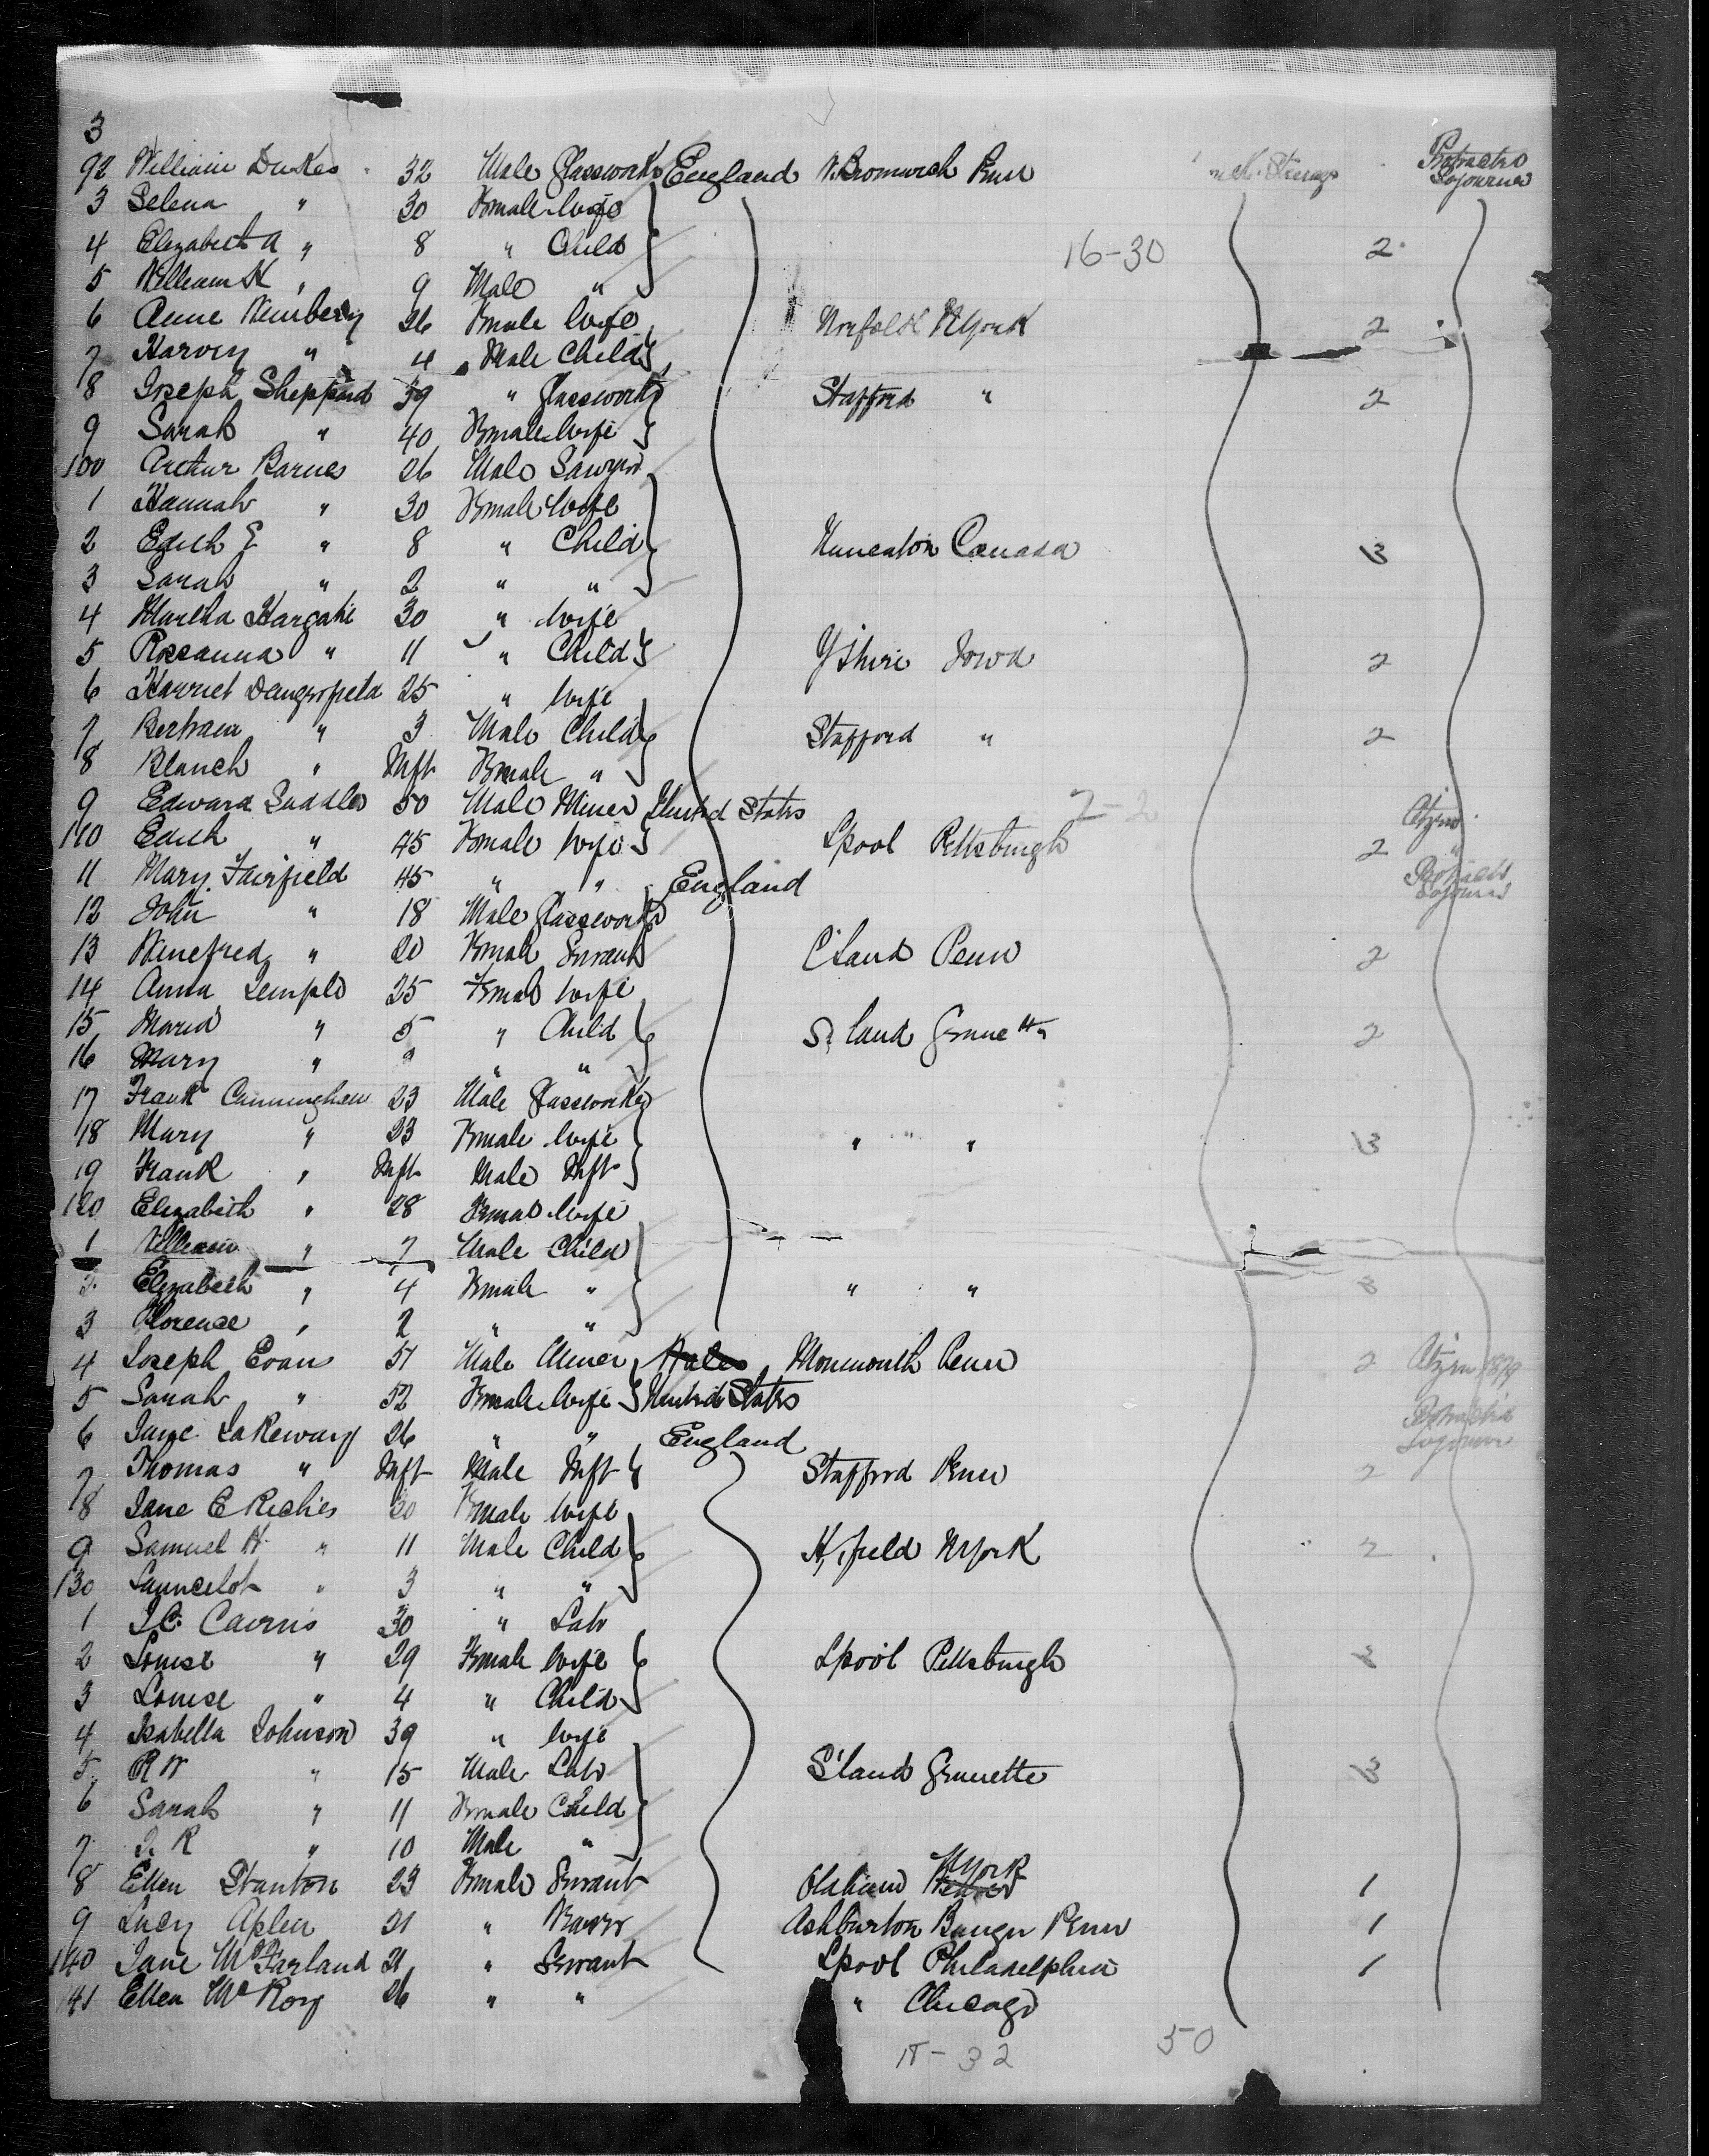 3
92 William Dukes 32 Male Glasswork England W. Bromwich Penn Protracted Sojourn
3 Selena " 30 Female Wife
4 Elizabeth A " 8 " Child 16-30 2
5 William H " 9 Male "
6 Anne Wimbery 26 Female Wife Norfolk N York 2
7 Harvey " 4 Male Child
8 Joseph Sheppard 39 " Glasswork Stafford " 2
9 Sarah " 40 Female Wife
100 Arthur Barnes 26 Male Sawyer
1 Hannah " 30 Female Wife
2 Edith E " 8 " Child Nuneaton Canada 3
3 Sarah " 2 " "
4 Martha 30 " Wife
5 Rosanna " 11 " Child Y'shire Iowa 2
6 Harriet 25 " Wife
7 Bertram " 3 Male Child Stafford " 2
8 Blanch " Inft Female "
9 Edward 50 Male Miner United States Ctzen
110 Edith " 45 Female Wife Lpool Pittsburgh 2 "
11 Mary Fairfield 45 " " England Sojourn
12 John " 18 Male Glasswork
13 Winefred " 20 Female Servant C'land Penn 2
14 Anna Temple 25 Female Wife
15 Maria " 5 " Child S'land 2
16 Mary " " "
17 Frank Cunningham 23 Male Glasswork
18 Mary " 23 Female Wife " " 3
19 Frank " Inft Male Inft
120 Elizabeth " 28 Female Wife
1 William " 7 Male Child
2 Elizabeth " 4 Female " " "
3 Florence " 2 " "
4 Joseph Evans 51 Male Miner Wales Monmouth Penn 2 Ctzen 1879
5 Sarah " 52 Female Wife United States
6 Jane Lakeway 26 " " England Sojourn
7 Thomas " Inft Male Inft Stafford Penn 2
8 Jane E Riches 30 Female Wife
9 Samuel H " 11 Male Child H,field N York 2
130 Launcelot " 3 " "
1 J.C. Cairns 30 " Labr
2 Louise " 29 Female Wife Lpool Pittsburgh
3 Louise " 4 " Child
4 Isabella Johnson 39 " Wife
5 R W " 15 Male Labr S'land 3
6 Sarah " 11 Female Child
7 J. R " 10 Male "
8 Ellen Stanton 23 Female Servant N York 1
9 Lucy Aplin 21 " Ashburton Bangor Penn 1
140 Jane McFarland 21 " Servant Lpool Philadelphia 1
141 Ellen McRory 26 " " " Chicago
18-32 50